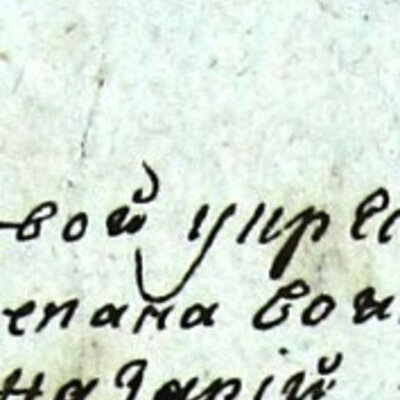 вой упре
епана вои
назарій